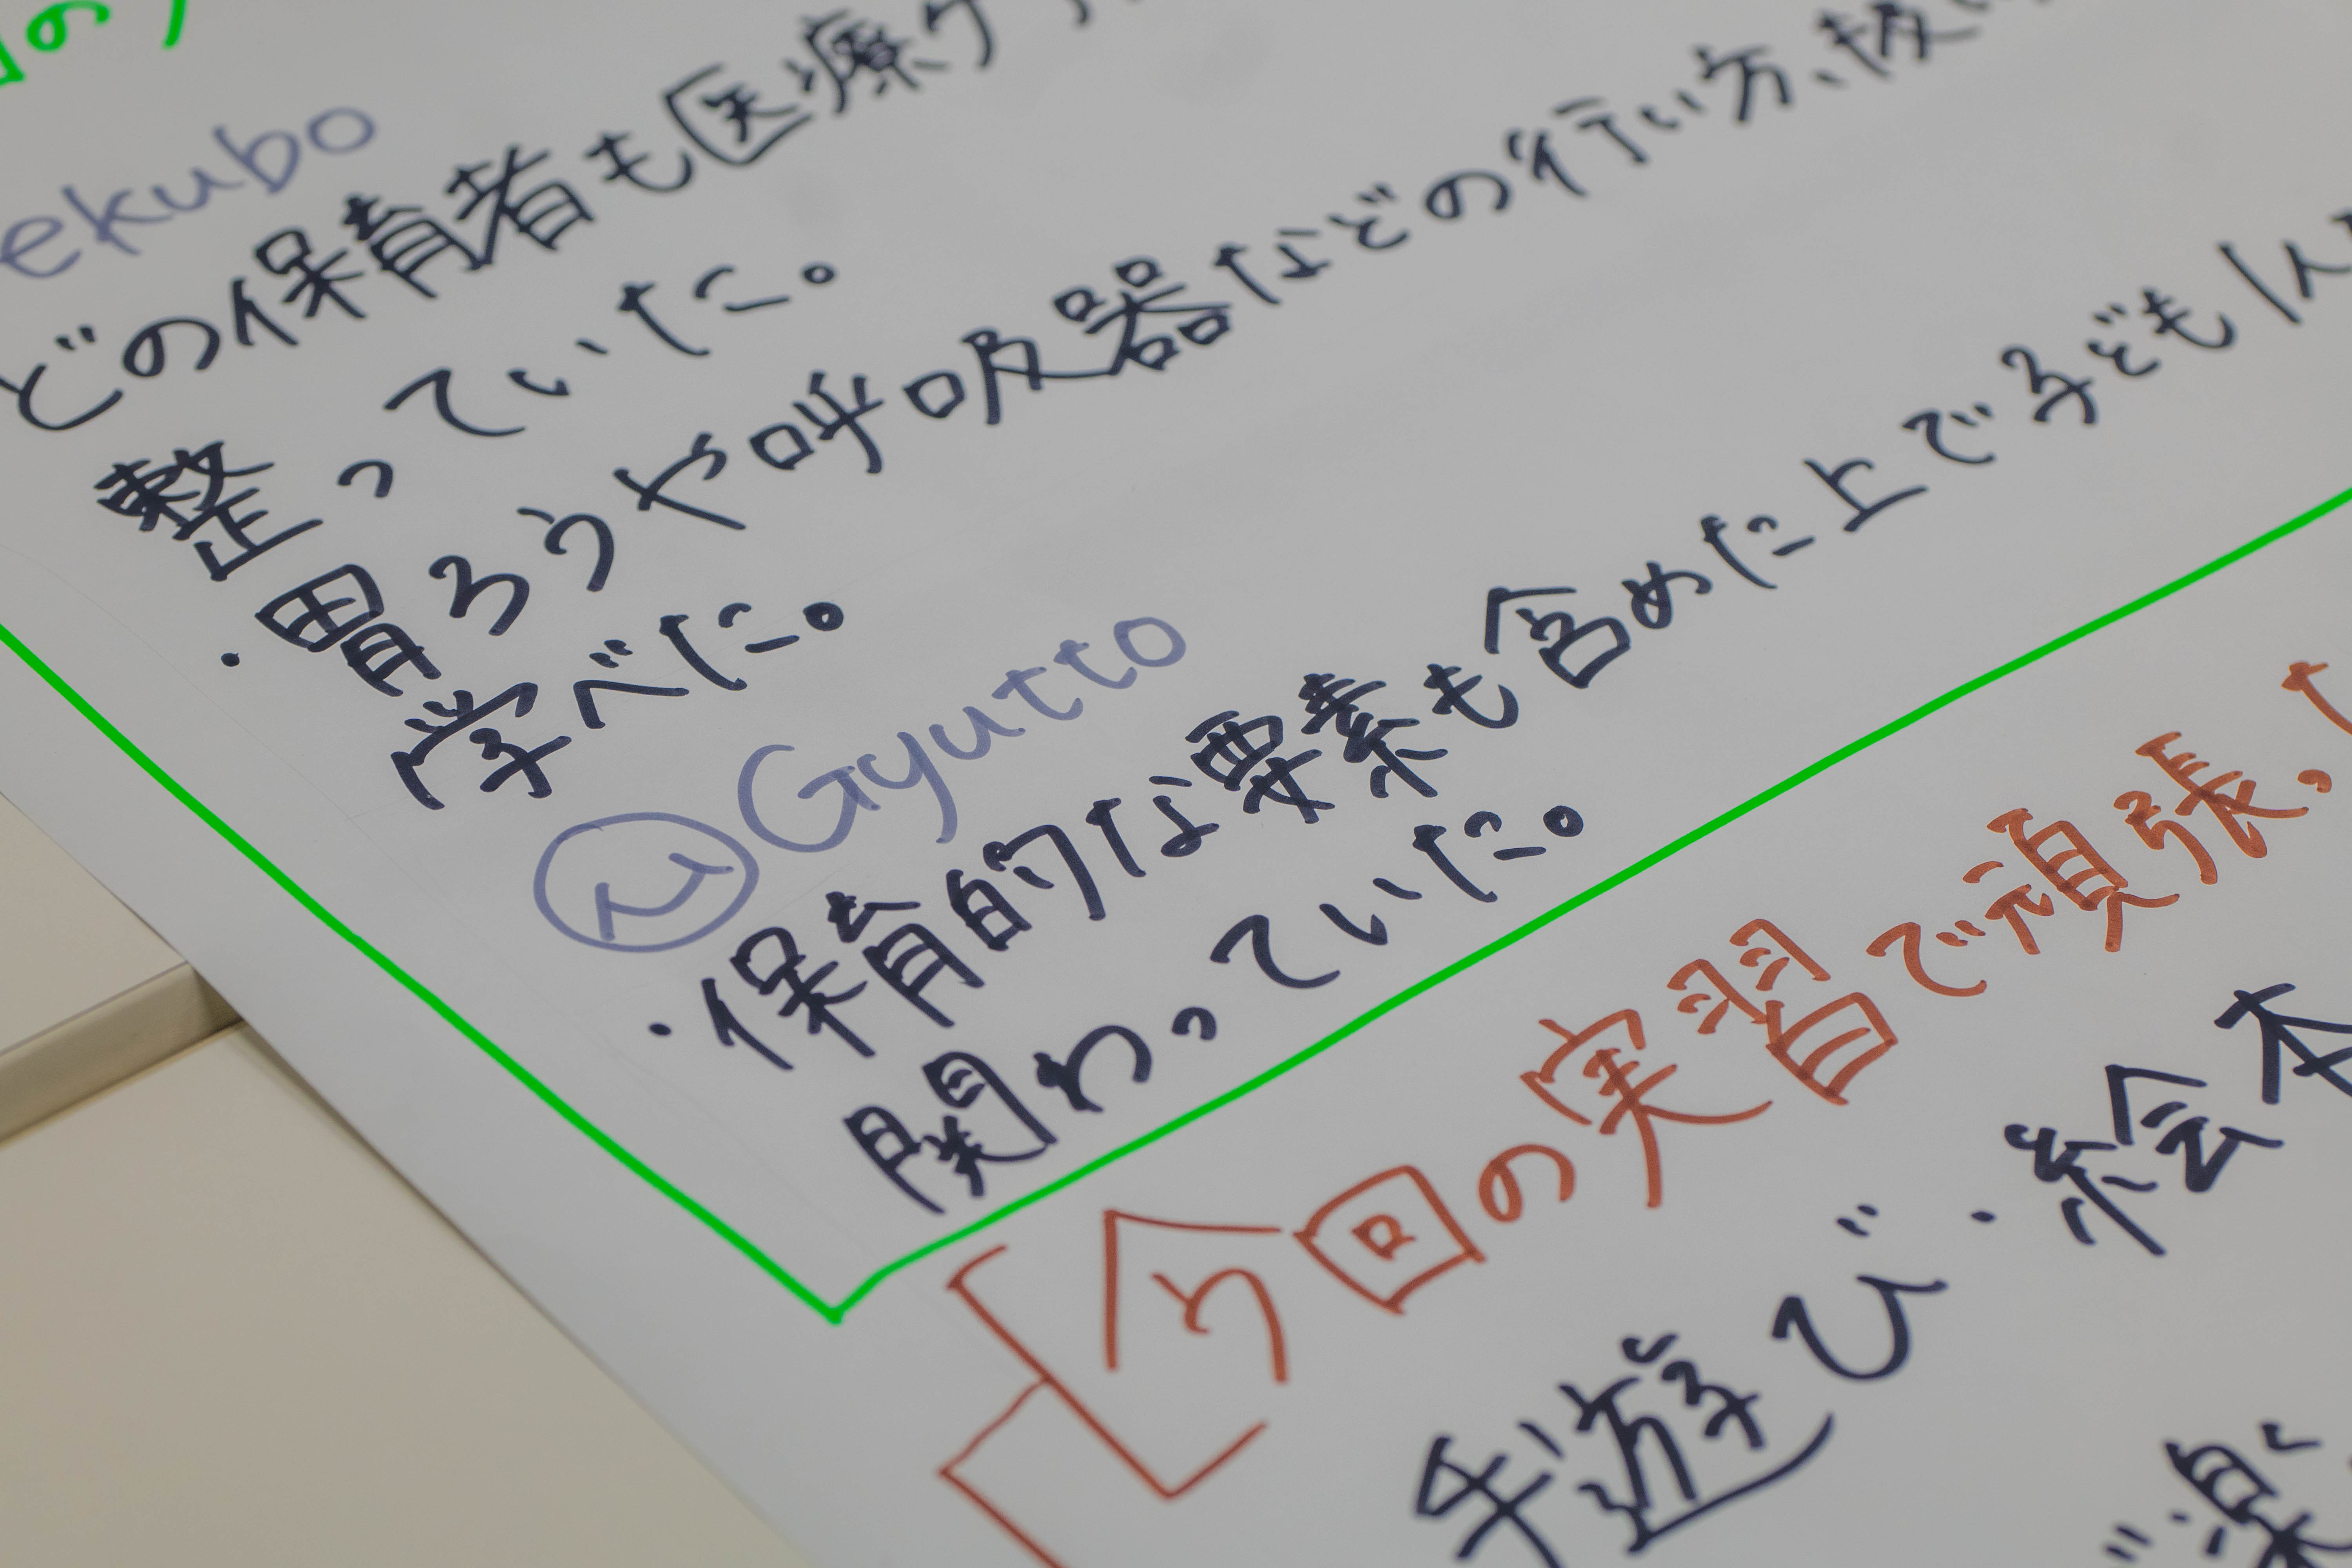 ekubo
どの保育者も医療ケ
整っていた。
・胃ろうや呼吸器などの行い方、
学べた。
Gyutto
・保育的な要素も含めた上で子ども
関わっていた。
今回の実習で頑張っ
手遊び・絵本